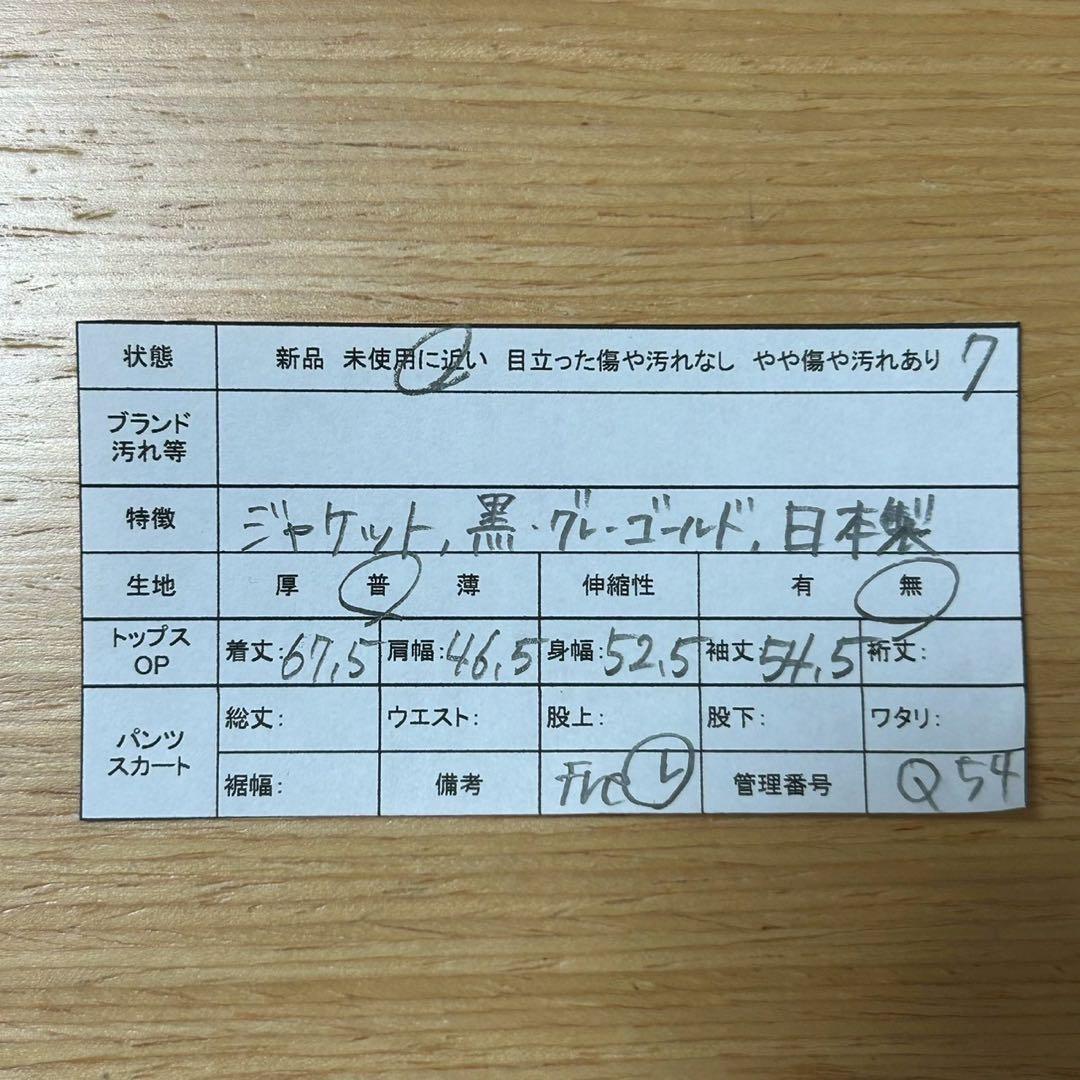 状態 新品 未使用に近い 目立った傷や汚れなし やや傷や汚れあり 7
ブランド
汚れ等
特徴 ジャケット, 黒・グレー・ゴールド, 日本製
生地 厚 普 薄 伸縮性 有 無
トップス
OP
着丈:67,5 肩幅:46,5 身幅:52,5 袖丈:54,5 裄丈:
パンツ
スカート
総丈: ウエスト: 股上: 股下: ワタリ:
裾幅: 備考 Fre L 管理番号 Q54